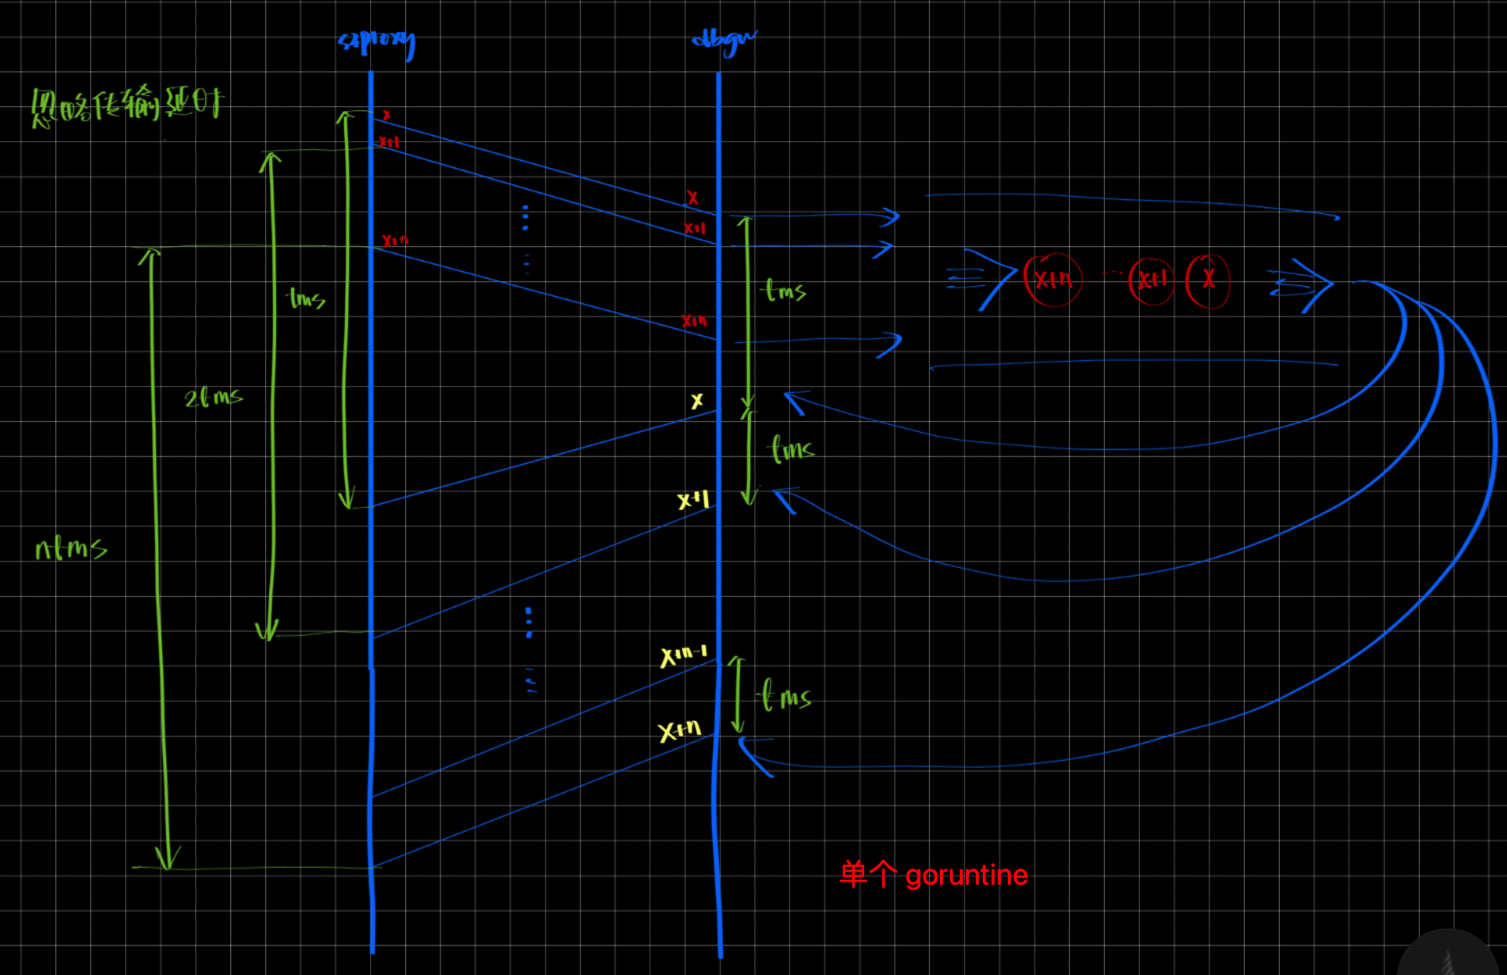 ssproxy
dbgw
忽略传输延时
x
x+1
x+n
x
x+1
x+n
tms
2tms
ntms
tms
x+n
x+1
x
x
tms
x+1
x+n-1
tms
x+n
单个 goruntine